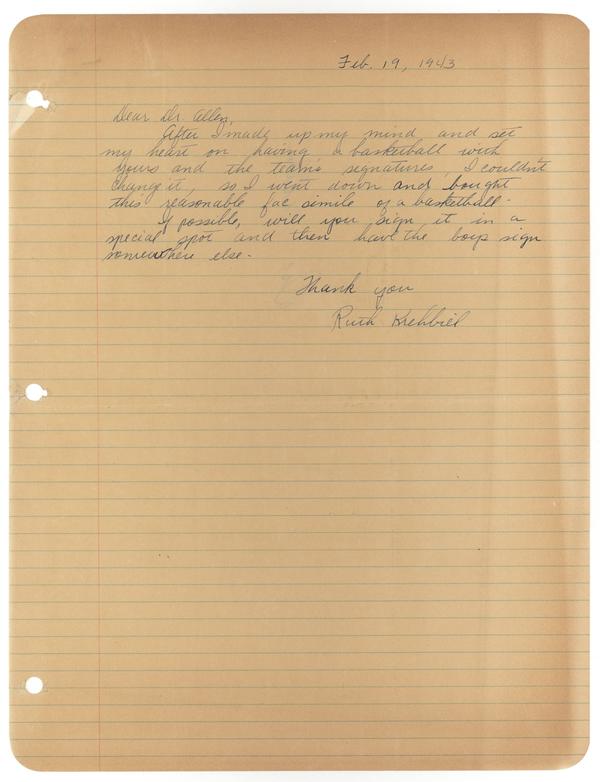 Feb. 19, 1943
Dear Dr. Allen,
After I made up my mind and set
my heart on having a basketball with
yours and the team's signatures, I couldn't
change it, so I went down and bought
this reasonable fac simile of a basketball.
If possible, will you sign it in a
special spot and then have the boys sign
somewhere else.
Thank you
Ruth Krehbiel